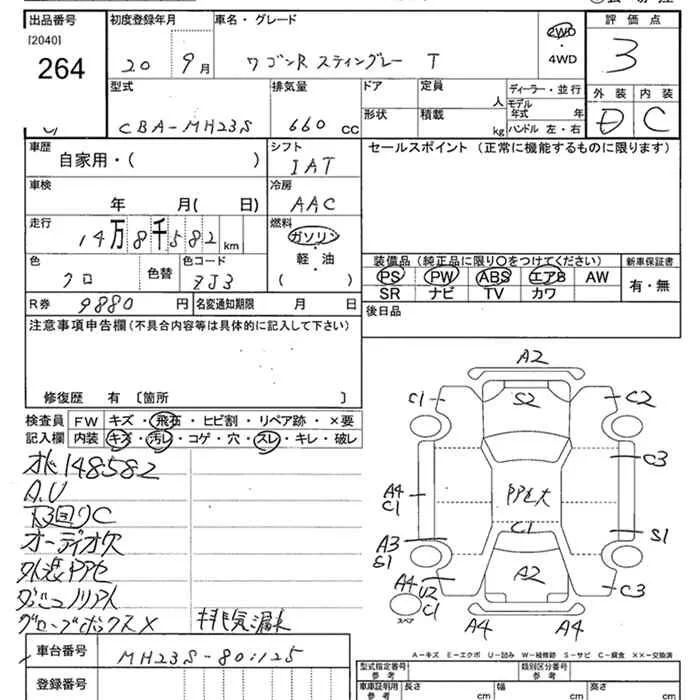 出品番号 初度登録年月 車名・グレード 評価点
[2040]
264 20 9月 ワゴンR スティングレー T 2WD・4WD 3
型式 排気量 ドア 定員 人 ディーラー・並行 外装 内装
CBA-MH23S 660 CC 形状 積載 kg モデル年式 年 ハンドル 左・右 D C
車歴 自家用・( ) シフト IAT セールスポイント (正常に機能するものに限ります)
車検 年 月( 日) 冷房 AAC
走行 14万8千582km 燃料 ガソリン・軽・油 ( )
装備品 (純正品に限り○をつけてください) 新車保証書
色 クロ 色替 色コード ZJ3 PS PW ABS エアB AW 有・無
SR ナビ TV カワ
R券 9880円 名変通知期限 月 日 後日品
注意事項申告欄 (不具合内容等は具体的に記入して下さい)
修復歴 有 [箇所 ]
検査員 FW キズ・飛石・ヒビ割・リペア跡・×要
記入欄 内装 キズ・汚レ・コゲ・穴・スレ・キレ・破レ
148582
A.U
下回りC
オーディオ欠
グローブボックス× 排気漏れ
車台番号 MH23S-80:125
登録番号
A2
C1 S2 C2
C3
A4
C1
C1
A3
S1 S1
A2
A4 U2
C1 C3
スペア
A4 A4
A-キズ E-エクボ U-凹み W-補修跡 S-サビ C-腐食 ××-交換済
型式指定番号 参考 類別区分番号 参考
車庫証明用 参考 長さ cm 幅 cm 高さ cm